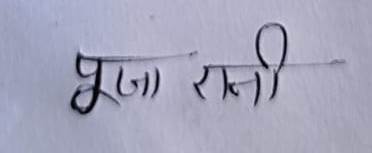 पूजा रानी